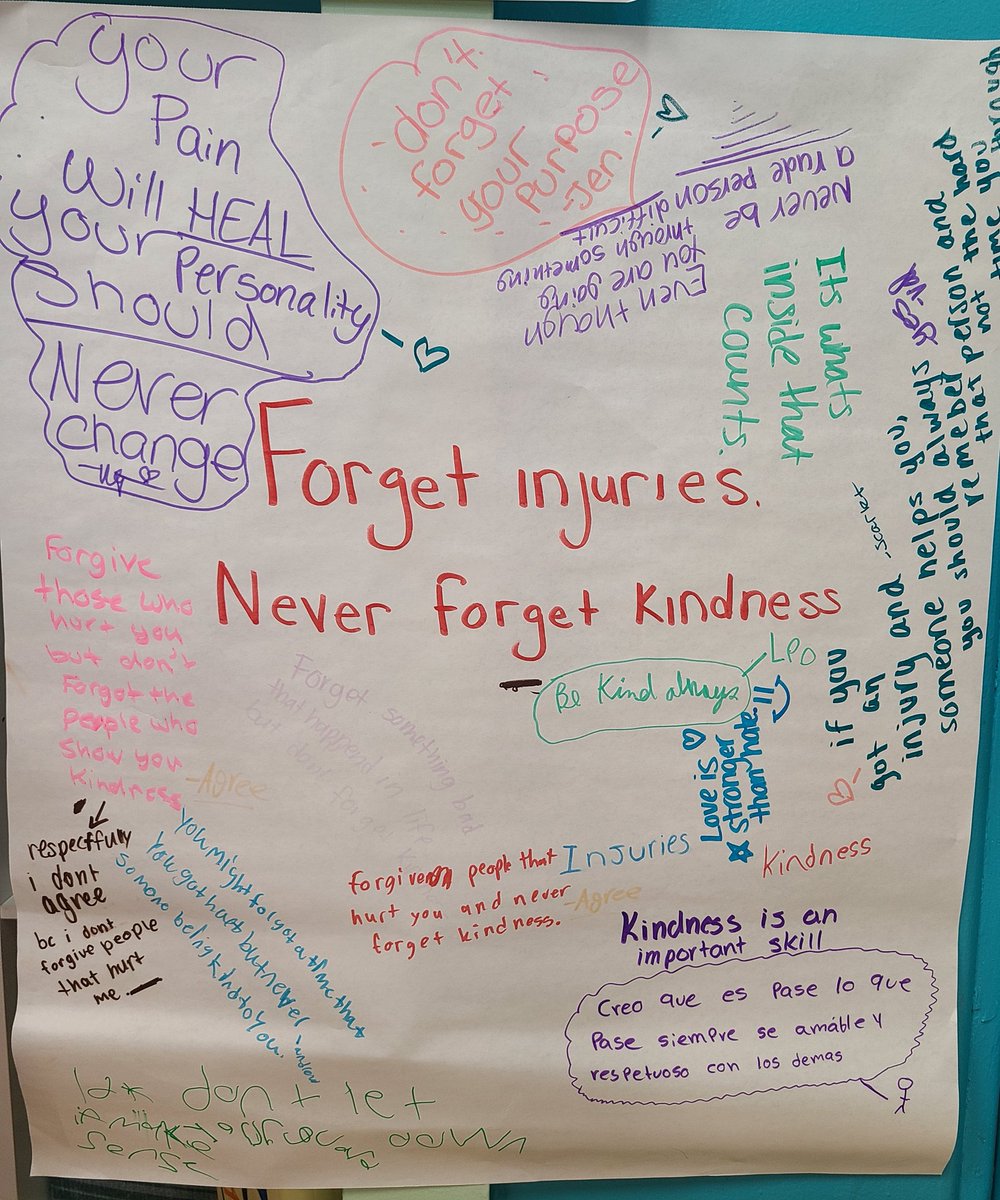 your
Pain
Will HEAL
your Personality
Should
Never
change
don't
forget
your
purpose
-Jen
Never be
a rude person
Even though
you are going
through something
difficult
Its whats
inside that
counts.
yes
if you
got an
injury and
someone helps you,
you should always
remeber that person and
not the hard
time you
-scarlet
Forget injuries.
Never forget Kindness
Forgive
those who
hurt you
but don't
Forgot the
people who
Show you
Kindness
-Agree
Forgot something bad
that happend in life
but dont forgot
LPO
Be Kind always
Love is
stronger
than hate!!
respectfully
i dont
agree
bc i dont
forgive people
that hurt
me.
You might forgot a time that
you got hurt but never
someone being kind to you.
forgive people that
hurt you and never
forget kindness.
Injuries
-Agree
Kindness
Kindness is an
important skill
Creo que es Pase lo que
Pase siempre se amáble y
respetuoso con los demas
don't let
down
sense